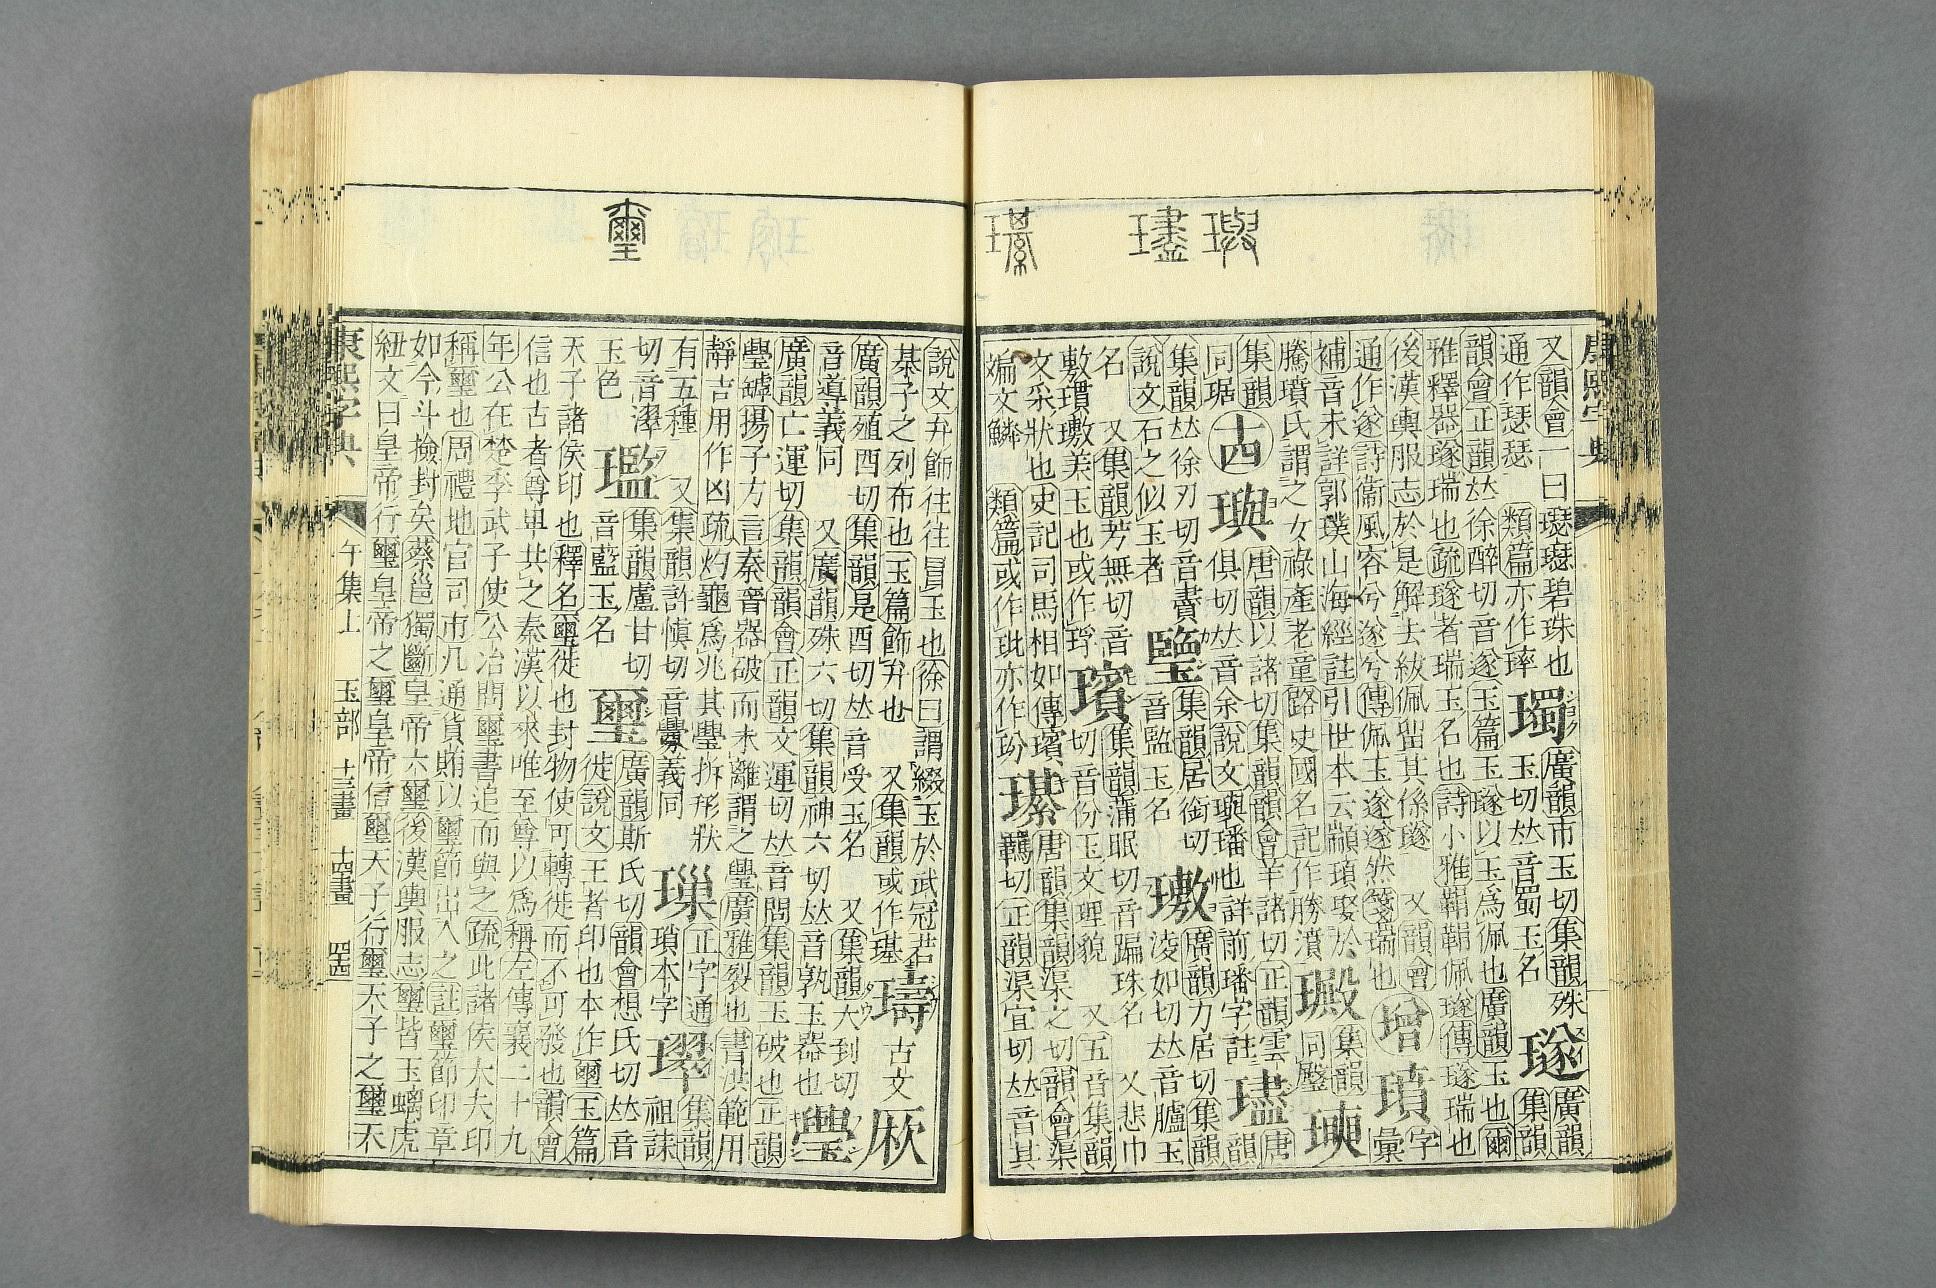 璵
璶
璽
康熙字典
又韻會一曰璱璱碧珠也
通作瑟瑟 類篇亦作
廣韻市玉切集韻殊
玉切𠀤音蜀玉名
璲
廣韻
集韻
韻會正韻𠀤徐醉切音遂玉篇玉璲以玉爲佩也廣韻玉也爾
雅釋器璲瑞也疏璲者瑞玉名也詩小雅鞙鞙佩璲傳璲瑞也
後漢輿服志於是解去紱佩留其係璲 又韻會
通作遂詩衞風容兮遂兮傳佩玉遂遂然箋瑞也
璔
字
彙
補音未詳郭璞山海經註引世本云顓頊娶於
騰墳氏謂之女祿產老童路史國名記作勝濆
集韻
同
集韻
同琚
十四
璵
唐韻以諸切集韻韻會羊諸切正韻雲
俱切𠀤音余說文璵璠也詳前璠字註
璶
唐
韻
集韻𠀤徐刃切音賮
說文石之似玉者
集韻居銜切
音監玉名
廣韻力居切集韻
淩如切𠀤音臚玉
名 又集韻芳無切音
敷璷璷美玉也或作琈
璸
集韻蒲眠切音蹁珠名 又悲巾
切音份玉文理貌 又五音集韻
文采狀也史記司馬相如傳璸
斒文鱗 類篇或作玭亦作玢
唐韻集韻渠之切韻會渠
羈切正韻渠宜切𠀤音其
說文弁飾往往冒玉也徐曰謂綴玉於武冠若
棊子之列布也玉篇飾弁也 又集韻或作璂
璹
古文
𠩺
廣韻殖酉切集韻是酉切𠀤音受玉名 又集韻大到切
音導義同 又廣韻殊六切集韻神六切𠀤音孰玉器也
璺
廣韻亡運切集韻韻會正韻文運切𠀤音問集韻玉破也正韻
璺罅揚子方言秦晉器破而未離謂之璺廣雅裂也書洪範用
靜吉用作凶疏灼龜爲兆其璺拆形狀
有五種 又集韻許愼切音釁義同
璅
正字通
瑣本字
集韻
祖誄
切音濢
玉色
璼
集韻盧甘切
音藍玉名
璽
廣韻斯氏切韻會想氏切𠀤音
徙說文王者印也本作壐玉篇
天子諸侯印也釋名璽徙也封物使可轉徙而不可發也韻會
信也古者尊𤰞共之秦漢以來唯至尊以爲稱左傳襄二十九
年公在楚季武子使公冶問璽書追而與之疏此諸侯大夫印
稱璽也周禮地官司市凡通貨賄以璽節出入之註璽節印章
如今斗檢封矣蔡邕獨斷皇帝六璽後漢輿服志璽皆玉螭虎
紐文曰皇帝行璽皇帝之璽皇帝信璽天子行璽天子之璽天
康熙字典
午集上 玉部 十三畫 十四畫